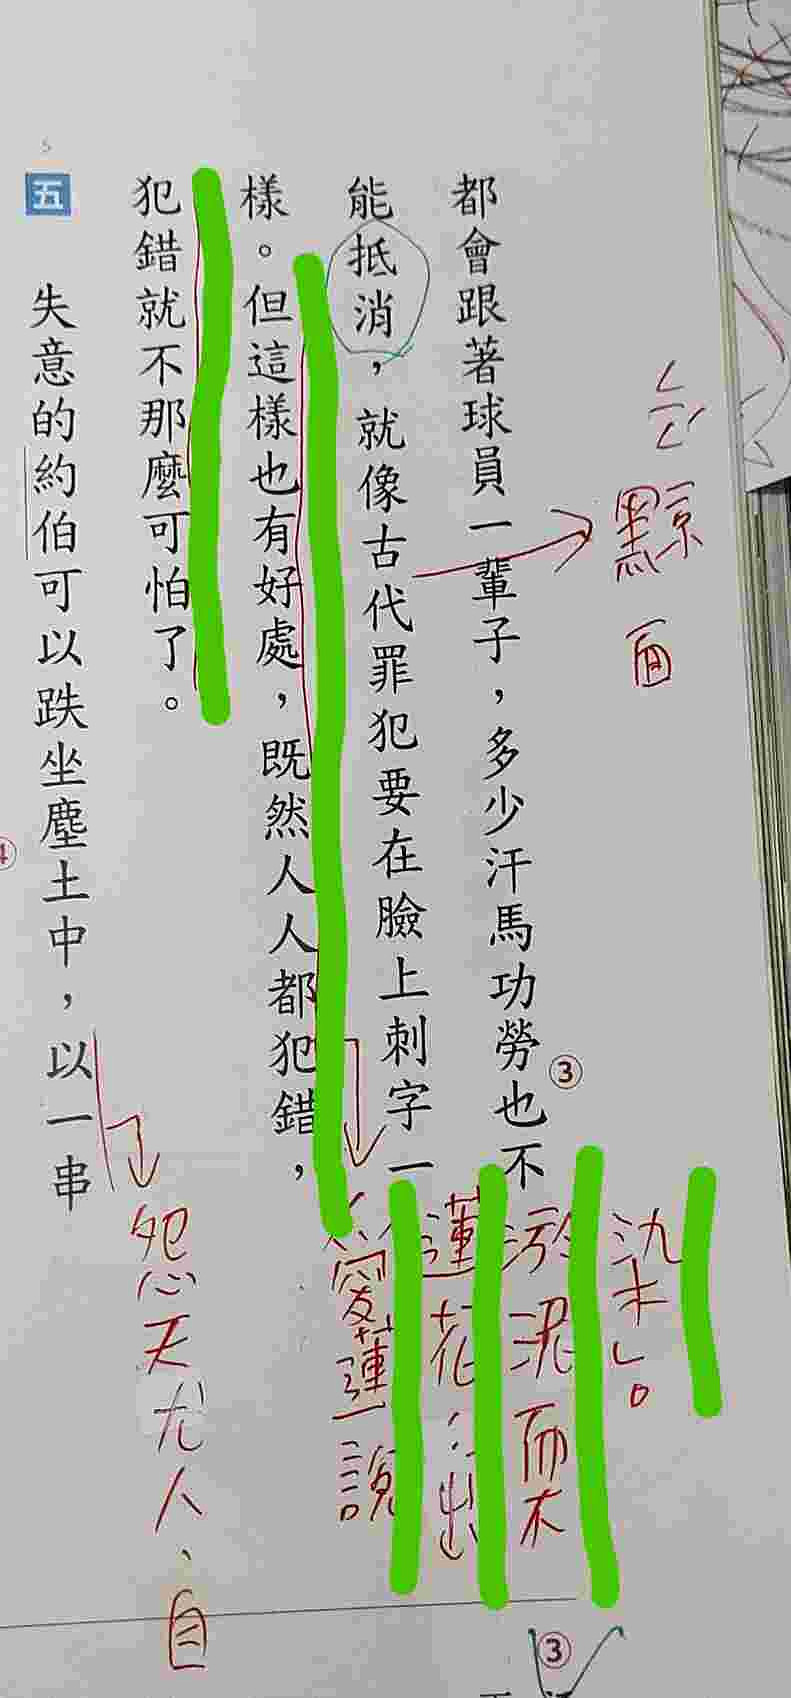 都會跟著球員一輩子，多少汗馬功勞也不
能抵消，就像古代罪犯要在臉上刺字一
樣。但這樣也有好處，既然人人都犯錯，
犯錯就不那麼可怕了。
五
失意的約伯可以跌坐塵土中，以一串
黥面
③
染」。
淤泥而不
蓮花：出
<愛蓮說
怨天尤人、自
③